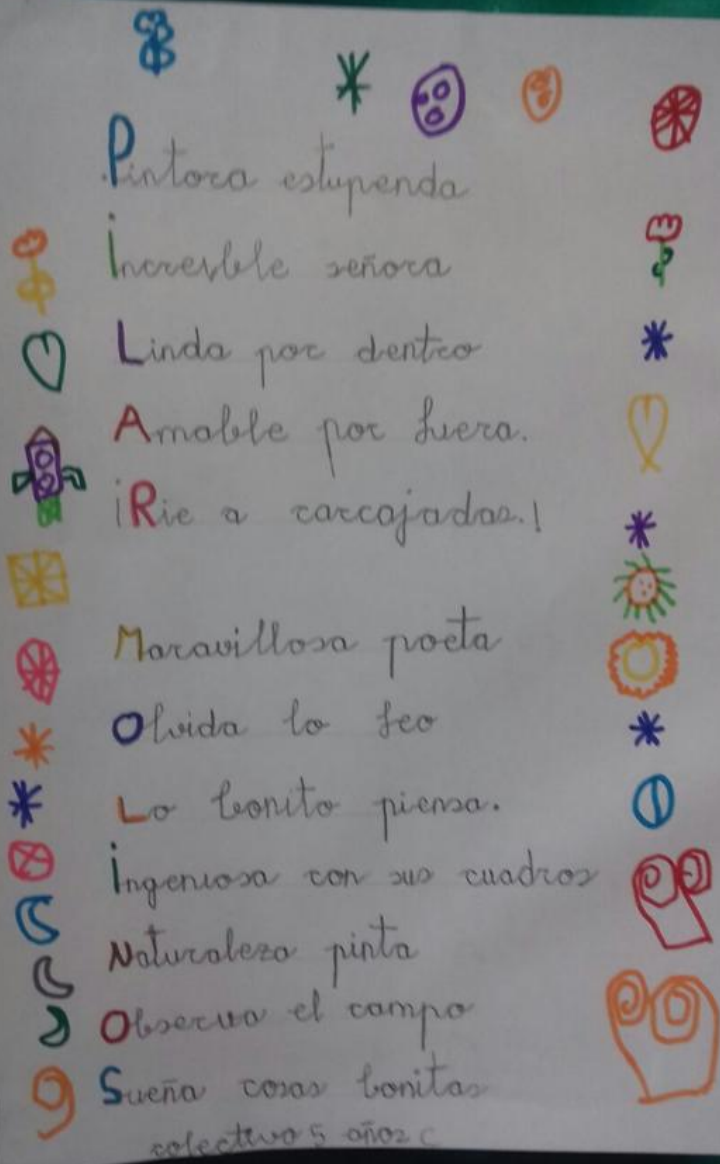 Pintora estupenda
Increible señora
Linda por dentro
Amable por fuera.
¡Rie a carcajadas.!
Maravillosa poeta
Olvida lo feo
Lo bonito piensa.
Ingeniosa con sus cuadros
Naturaleza pinta
Observa el campo
Sueña cosas bonitas
colectivo 5 años C